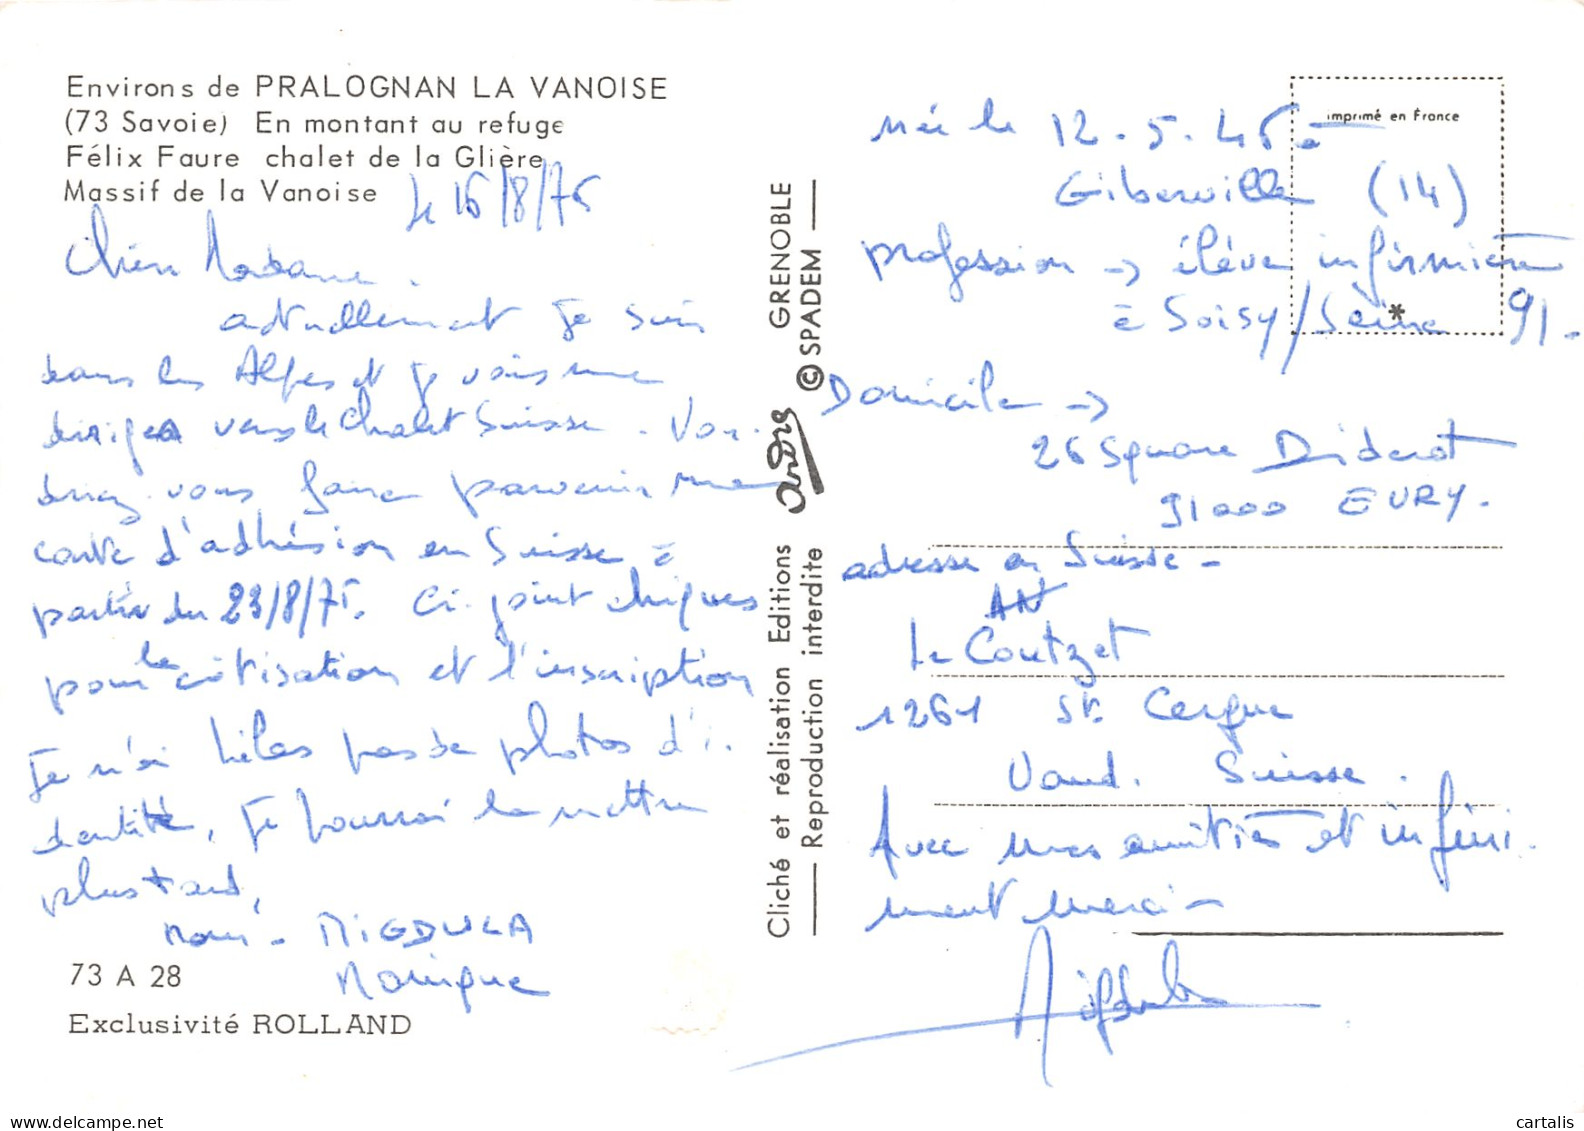 Environs de PRALOGNAN LA VANOISE
(73 Savoie) En montant au refuge
Félix Faure chalet de la Glière
Massif de la Vanoise
Le 16/8/76
Chère Madame.
actuellement je suis
dans les Alpes et je vais me
diriger vers le chalet Suisse. Vou-
driez-vous faire parvenir ma
carte d'adhésion en Suisse à
partir du 23/8/76. Ci-joint chèques
pour la cotisation et l'inscription
Je n'ai hélas pas de photos d'i-
dentité, je pourrai la mettre
plus tard,
nom - MIGDULA
Monique
73 A 28
Exclusivité ROLLAND
Cliché et réalisation Editions andré GRENOBLE
Reproduction interdite © SPADEM
imprimé en France
née le 12.5.46 à
Giberville (14)
profession → élève infirmière
à Soisy/Seine 91.
*
Domicile →
26 Square Diderot
91000 EVRY.
adresse en Suisse -
Le Coutzet
1261 St. Cergue
Vaud. Suisse.
Avec mes amitiés et infini-
ment merci -
Migdula